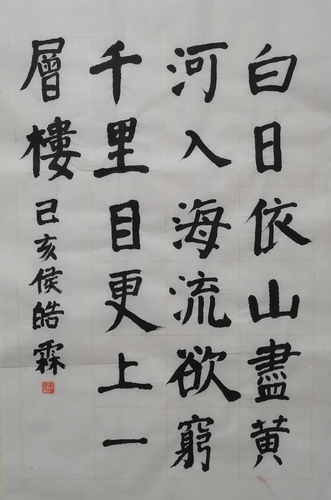 白日依山盡黄
河入海流欲窮
千里目更上一
層樓
己亥侯皓霖